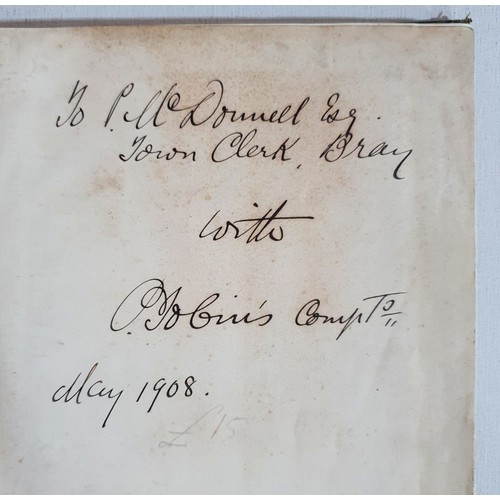 To P. McDonnell Esq.
Town Clerk, Bray
with
P. Tobin's Compts
May 1908.
£15